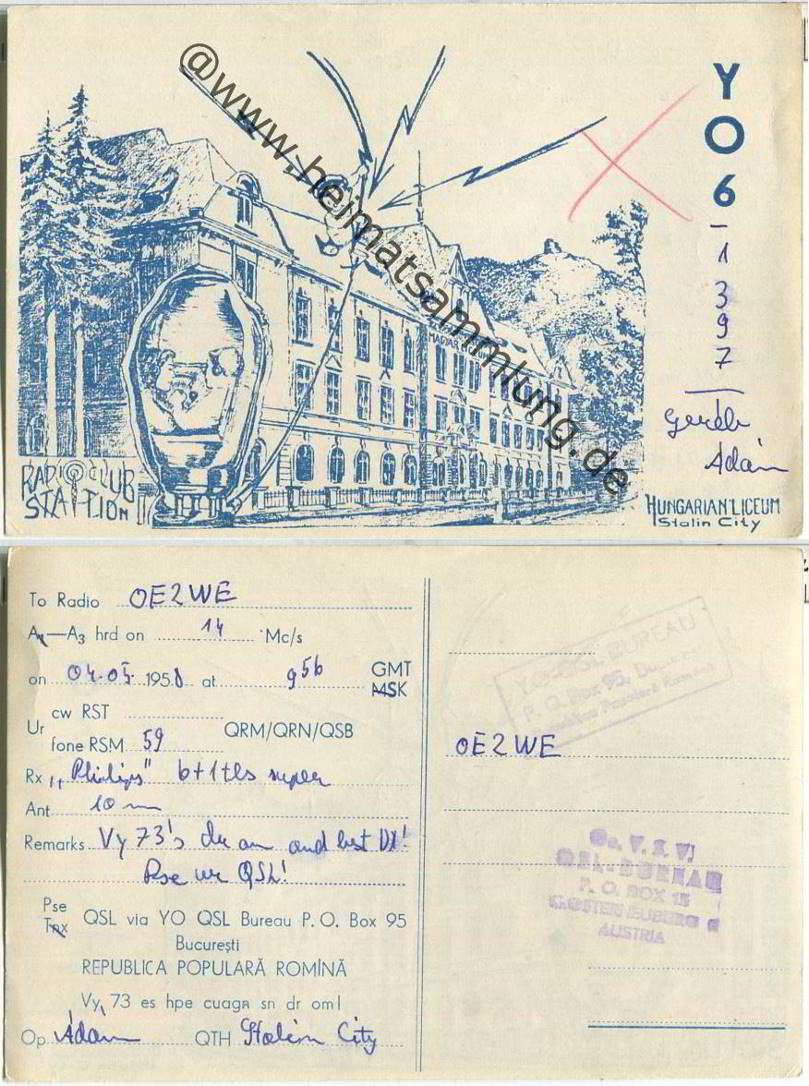 @www.heimatsammlung.de
YO6
-1397
Geréb
Ádám
MAGYAR
RADIO CLUB
STATION
HUNGARIAN LICEUM
Stalin City
To Radio OE2WE
A1—A3 hrd on 14 Mc/s
on 04.05. 1958 at 9 56 GMT
MSK
Ur cw RST
fone RSM 59 QRM/QRN/QSB
Rx „Philips" 6+1tbs super
Ant 10 m
Remarks Vy 73's dr om and best DX!
Pse ur QSL!
Pse
Tnx QSL via YO QSL Bureau P. O. Box 95
București
REPUBLICA POPULARĂ ROMÎNĂ
Vy 73 es hpe cuagn sn dr om!
Op Ádám QTH Stalin City
YO-QSL BUREAU
P. O. Box 95,
Republica Populara Romina
OE2WE
Oe. V. S. V.
QSL-BUREAU
P. O. BOX
AUSTRIA